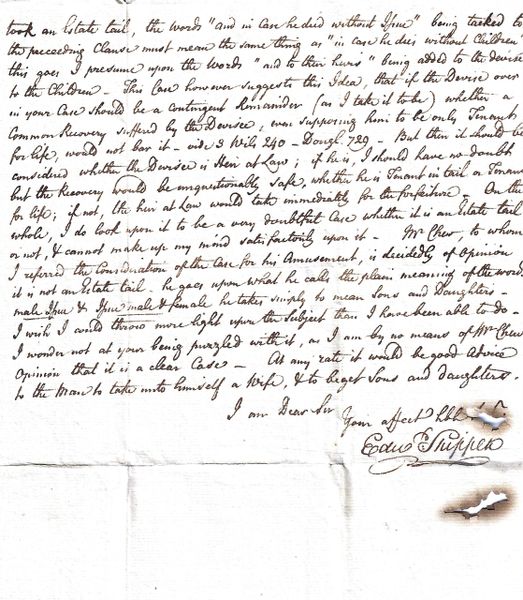 took an Estate tail, the words "and in case he died without Issue" being tacked to
the preceeding Clause must mean the same thing as "in case he dies without Children"
this goes I presume upon the Words "and to their heirs" being added to the devise
to the Children - This Case however suggests this Idea, that if the Devise over
in your Case should be a Contingent Remainder (as I take it to be) whether a
Common Recovery suffered by the Devisee, even supposing him to be only Tenant
for life, would not bar it - vide 3 Wils 240 - Dougl. 729 - But then it should be
considered whether the Devisee is Heir at Law; if he is, I should have no doubt
but the Recovery would be unquestionably safe, whether he is Tenant in tail or Tenant
for life; if not the heir at Law would take immediately for the forfeiture - On the
whole, I do look upon it to be a very doubtful Case whether it is an Estate tail
or not, & cannot make up my mind satisfactorily upon it - Mr Chew, to whom
I referred the Consideration of the Case for his Amusement, is decidedly of Opinion
it is not an Estate tail - he goes upon what he calls the plain meaning of the word
male Issue & Issue male & female he takes simply to mean Sons and Daughters -
I wish I could throw more light upon the Subject than I have been able to do -
I wonder not at your being puzzled with it, as I am by no means of Mr Chew's
Opinion that it is a clear Case - At any rate it would be good Advice
to the Man to take unto himself a Wife, & to beget Sons and daughters.
I am Dear Sir
Your affect hble
Edwd Shippen